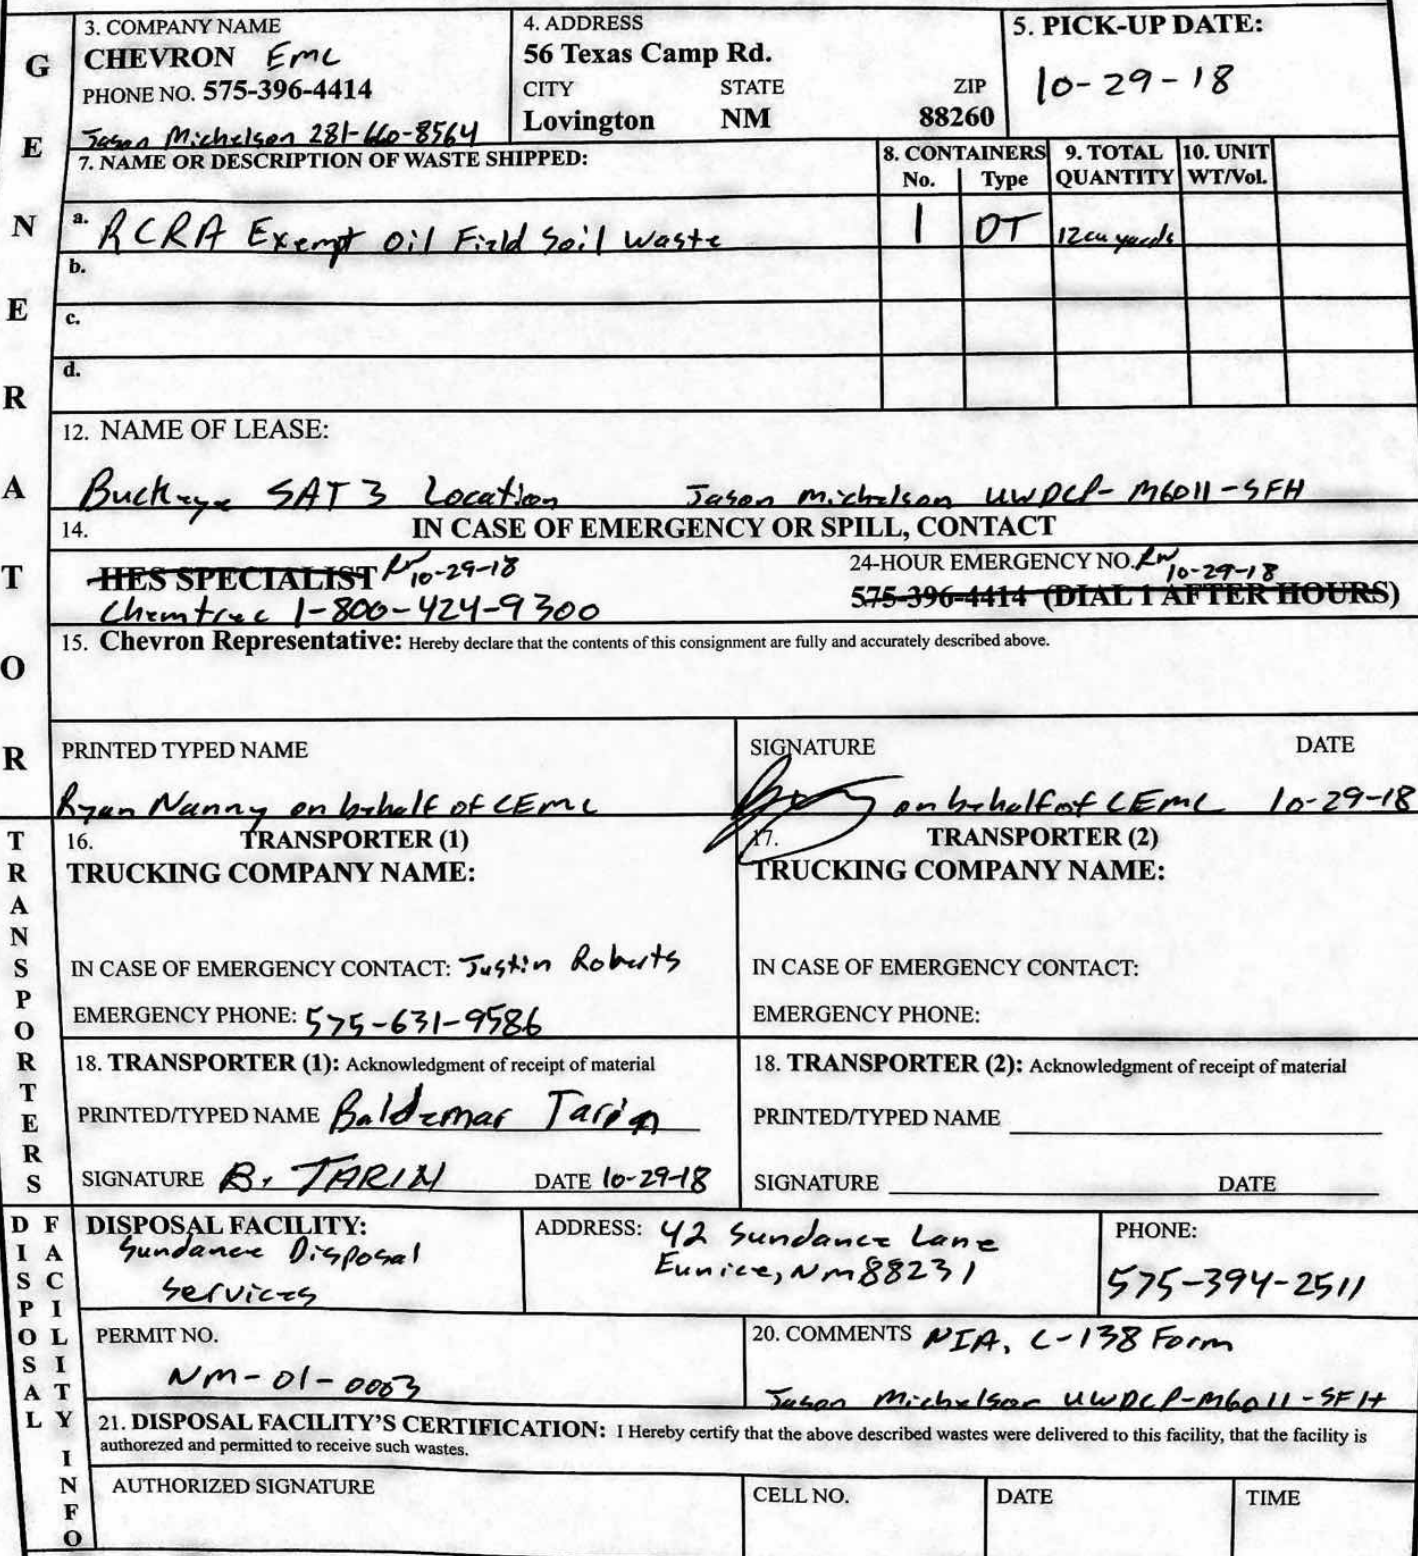 GENERATOR
3. COMPANY NAME
CHEVRON EMC
PHONE NO. 575-396-4414
Jason Michelson 281-660-8564
4. ADDRESS
56 Texas Camp Rd.
CITY STATE ZIP
Lovington NM 88260
5. PICK-UP DATE:
10-29-18
7. NAME OR DESCRIPTION OF WASTE SHIPPED:
8. CONTAINERS
No. Type
9. TOTAL QUANTITY
10. UNIT WT/Vol.
a. RCRA Exempt Oil Field Soil Waste 1 DT 12cu yards
b.
c.
d.
12. NAME OF LEASE:
Buckeye SAT 3 Location Jason Michelson UWDCP-M6011-SFH
14. IN CASE OF EMERGENCY OR SPILL, CONTACT
HES SPECIALIST RN 10-29-18
Chemtrec 1-800-424-9300
24-HOUR EMERGENCY NO. RN 10-29-18
575-396-4414 (DIAL 1 AFTER HOURS)
15. Chevron Representative: Hereby declare that the contents of this consignment are fully and accurately described above.
PRINTED TYPED NAME
Ryan Nanny on behalf of CEMC
SIGNATURE DATE
on behalf of CEMC 10-29-18
TRANSPORTERS
16. TRANSPORTER (1)
TRUCKING COMPANY NAME:
IN CASE OF EMERGENCY CONTACT: Justin Roberts
EMERGENCY PHONE: 575-631-9586
17. TRANSPORTER (2)
TRUCKING COMPANY NAME:
IN CASE OF EMERGENCY CONTACT:
EMERGENCY PHONE:
18. TRANSPORTER (1): Acknowledgment of receipt of material
PRINTED/TYPED NAME Baldemar Tarin
SIGNATURE B. TARIN DATE 10-29-18
18. TRANSPORTER (2): Acknowledgment of receipt of material
PRINTED/TYPED NAME
SIGNATURE DATE
DISPOSAL FACILITY INFO
DISPOSAL FACILITY:
Sundance Disposal
Services
ADDRESS: 42 Sundance Lane
Eunice, NM 88231
PHONE:
575-394-2511
PERMIT NO.
NM-01-0003
20. COMMENTS NIA, C-138 Form
Jason Michelson UWDCP-M6011-SFH
21. DISPOSAL FACILITY'S CERTIFICATION: I Hereby certify that the above described wastes were delivered to this facility, that the facility is
authorezed and permitted to receive such wastes.
AUTHORIZED SIGNATURE
CELL NO.
DATE
TIME